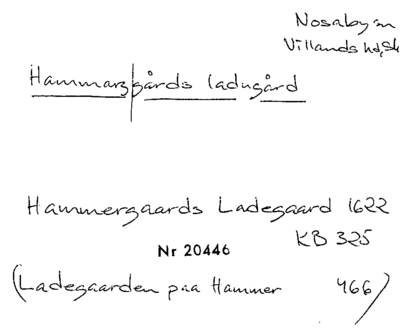 Nosaby sn
Villands hd, Sk
Hammarsgårds ladugård
Hammergaards Ladegaard 1622
KB 325
Nr 20446
(Ladegaarden paa Hammer 466)